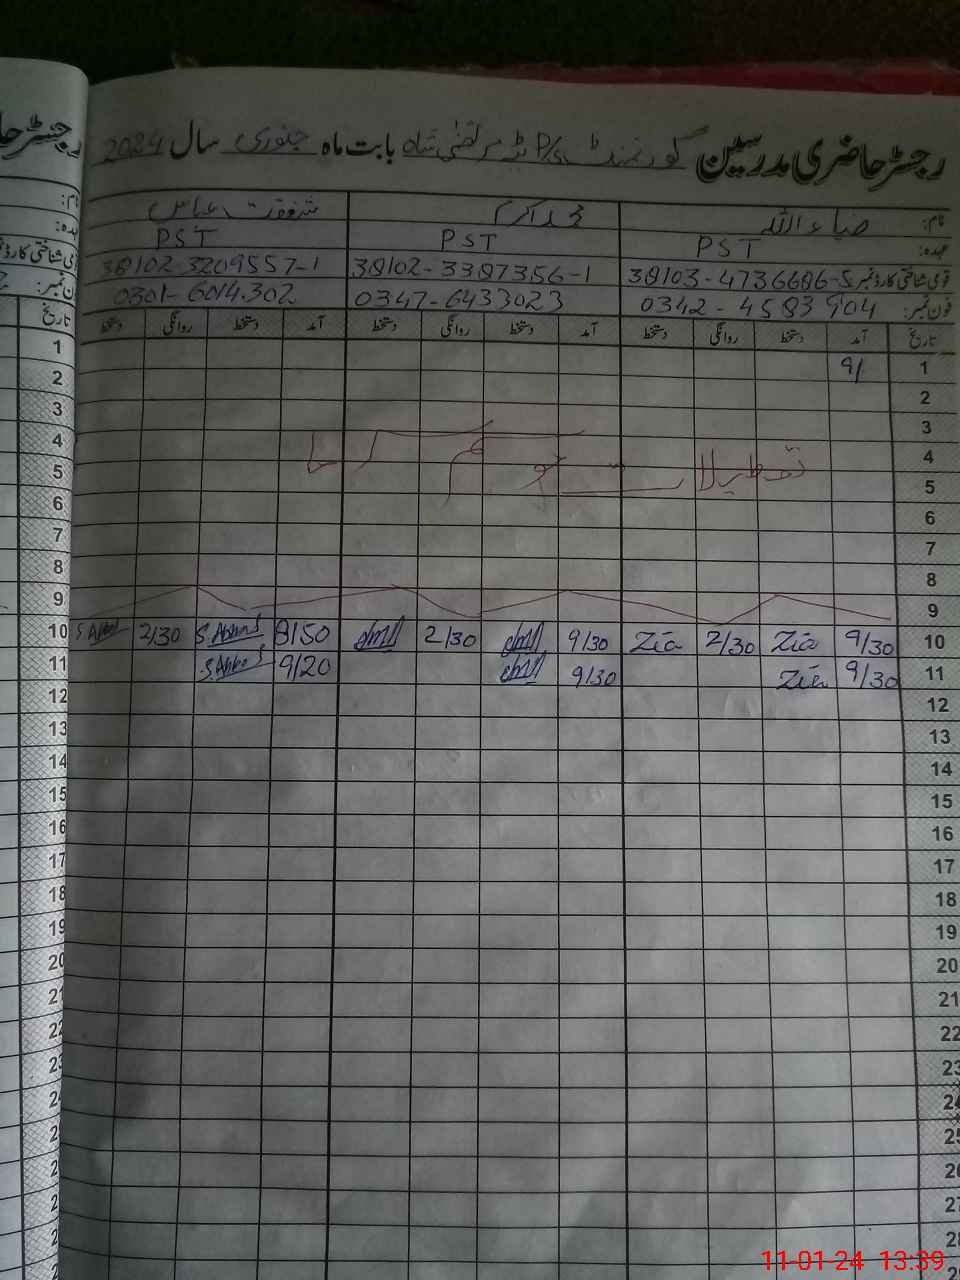 رجسٹر حاضری مدرسین گورنمنٹ P/S مرتضیٰ شاہ بابت ماہ جنوری سال 2024
نام: ضیاء اللہ محمد اکرم شفقت عباس
عہدہ: PST PST PST
قومی شناختی کارڈ نمبر: 38103-4736686-5 38102-3387356-1 38102-3209557-1
فون نمبر: 0342-4583904 0347-6433023 0301-6014302
تاریخ آمد دستخط روانگی دستخط آمد دستخط روانگی دستخط آمد دستخط روانگی دستخط
1 9/
2
3
4
تعطیلات موسم سرما
5
6
7
8
9
10 9/30 Zia 2/30 Zia 9/30 2/30 8/50 S.Abbas 2/30 S.Abbas
11 9/30 Zia 9/30 9/20 S.Abbas
12
13
14
15
16
17
18
19
20
21
22
23
24
25
26
27
28
29
رجسٹر حا
نام:
عہدہ:
قومی شناختی کارڈ
فون نمبر:
تاریخ
1
2
3
4
5
6
7
8
9
10
11
12
13
14
15
16
17
18
19
20
21
22
23
11-01-24 13:39